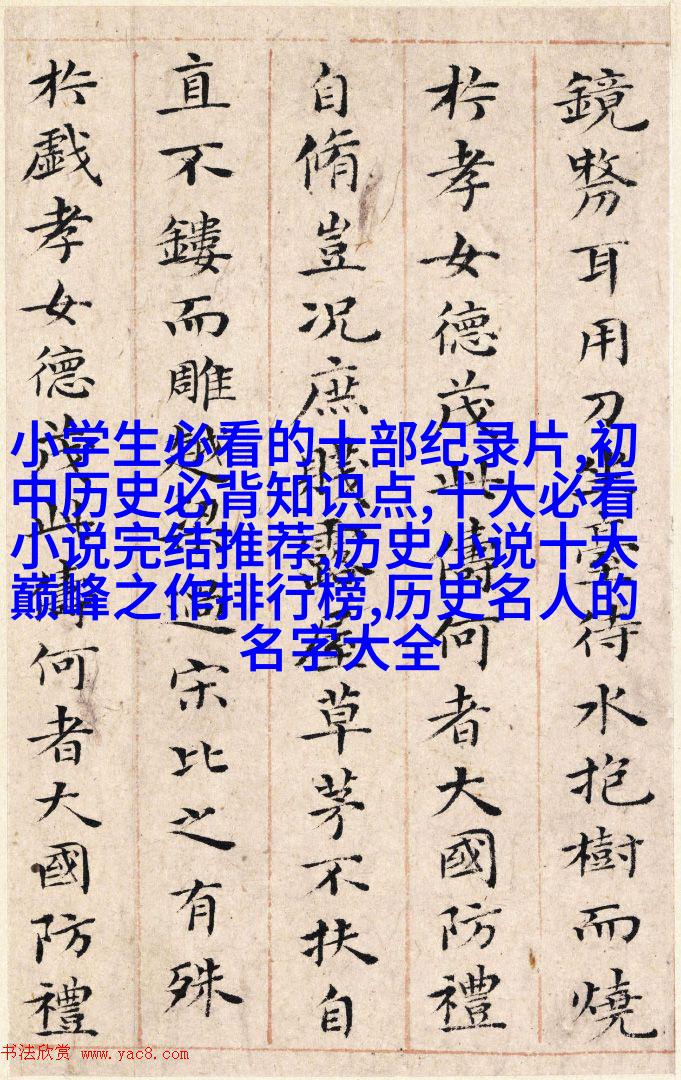 鏡剺耳用刀坐臺待水抱樹而燒
於孝女德茂此儔何者大國防禮
自脩豈況庶賤露屋草茅不扶自
直不鏤而雕越梁過宋比之有殊
於戲孝女德茂此儔何者大國防禮
小学生必看的十部纪录片,初
中历史必背知识点,十大必看
小说完结推荐,历史小说十大
巅峰之作排行榜,历史名人的
名字大全
书法欣赏 www.yac8.com